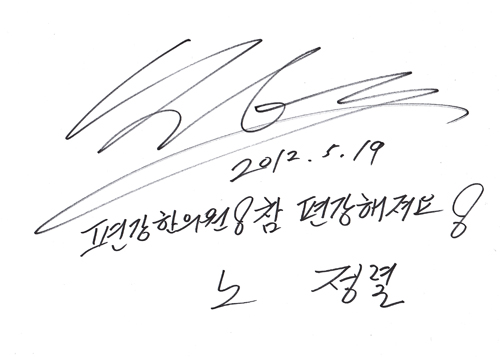 2012.5.19
편강한의원 참 편강해져요
노 정렬